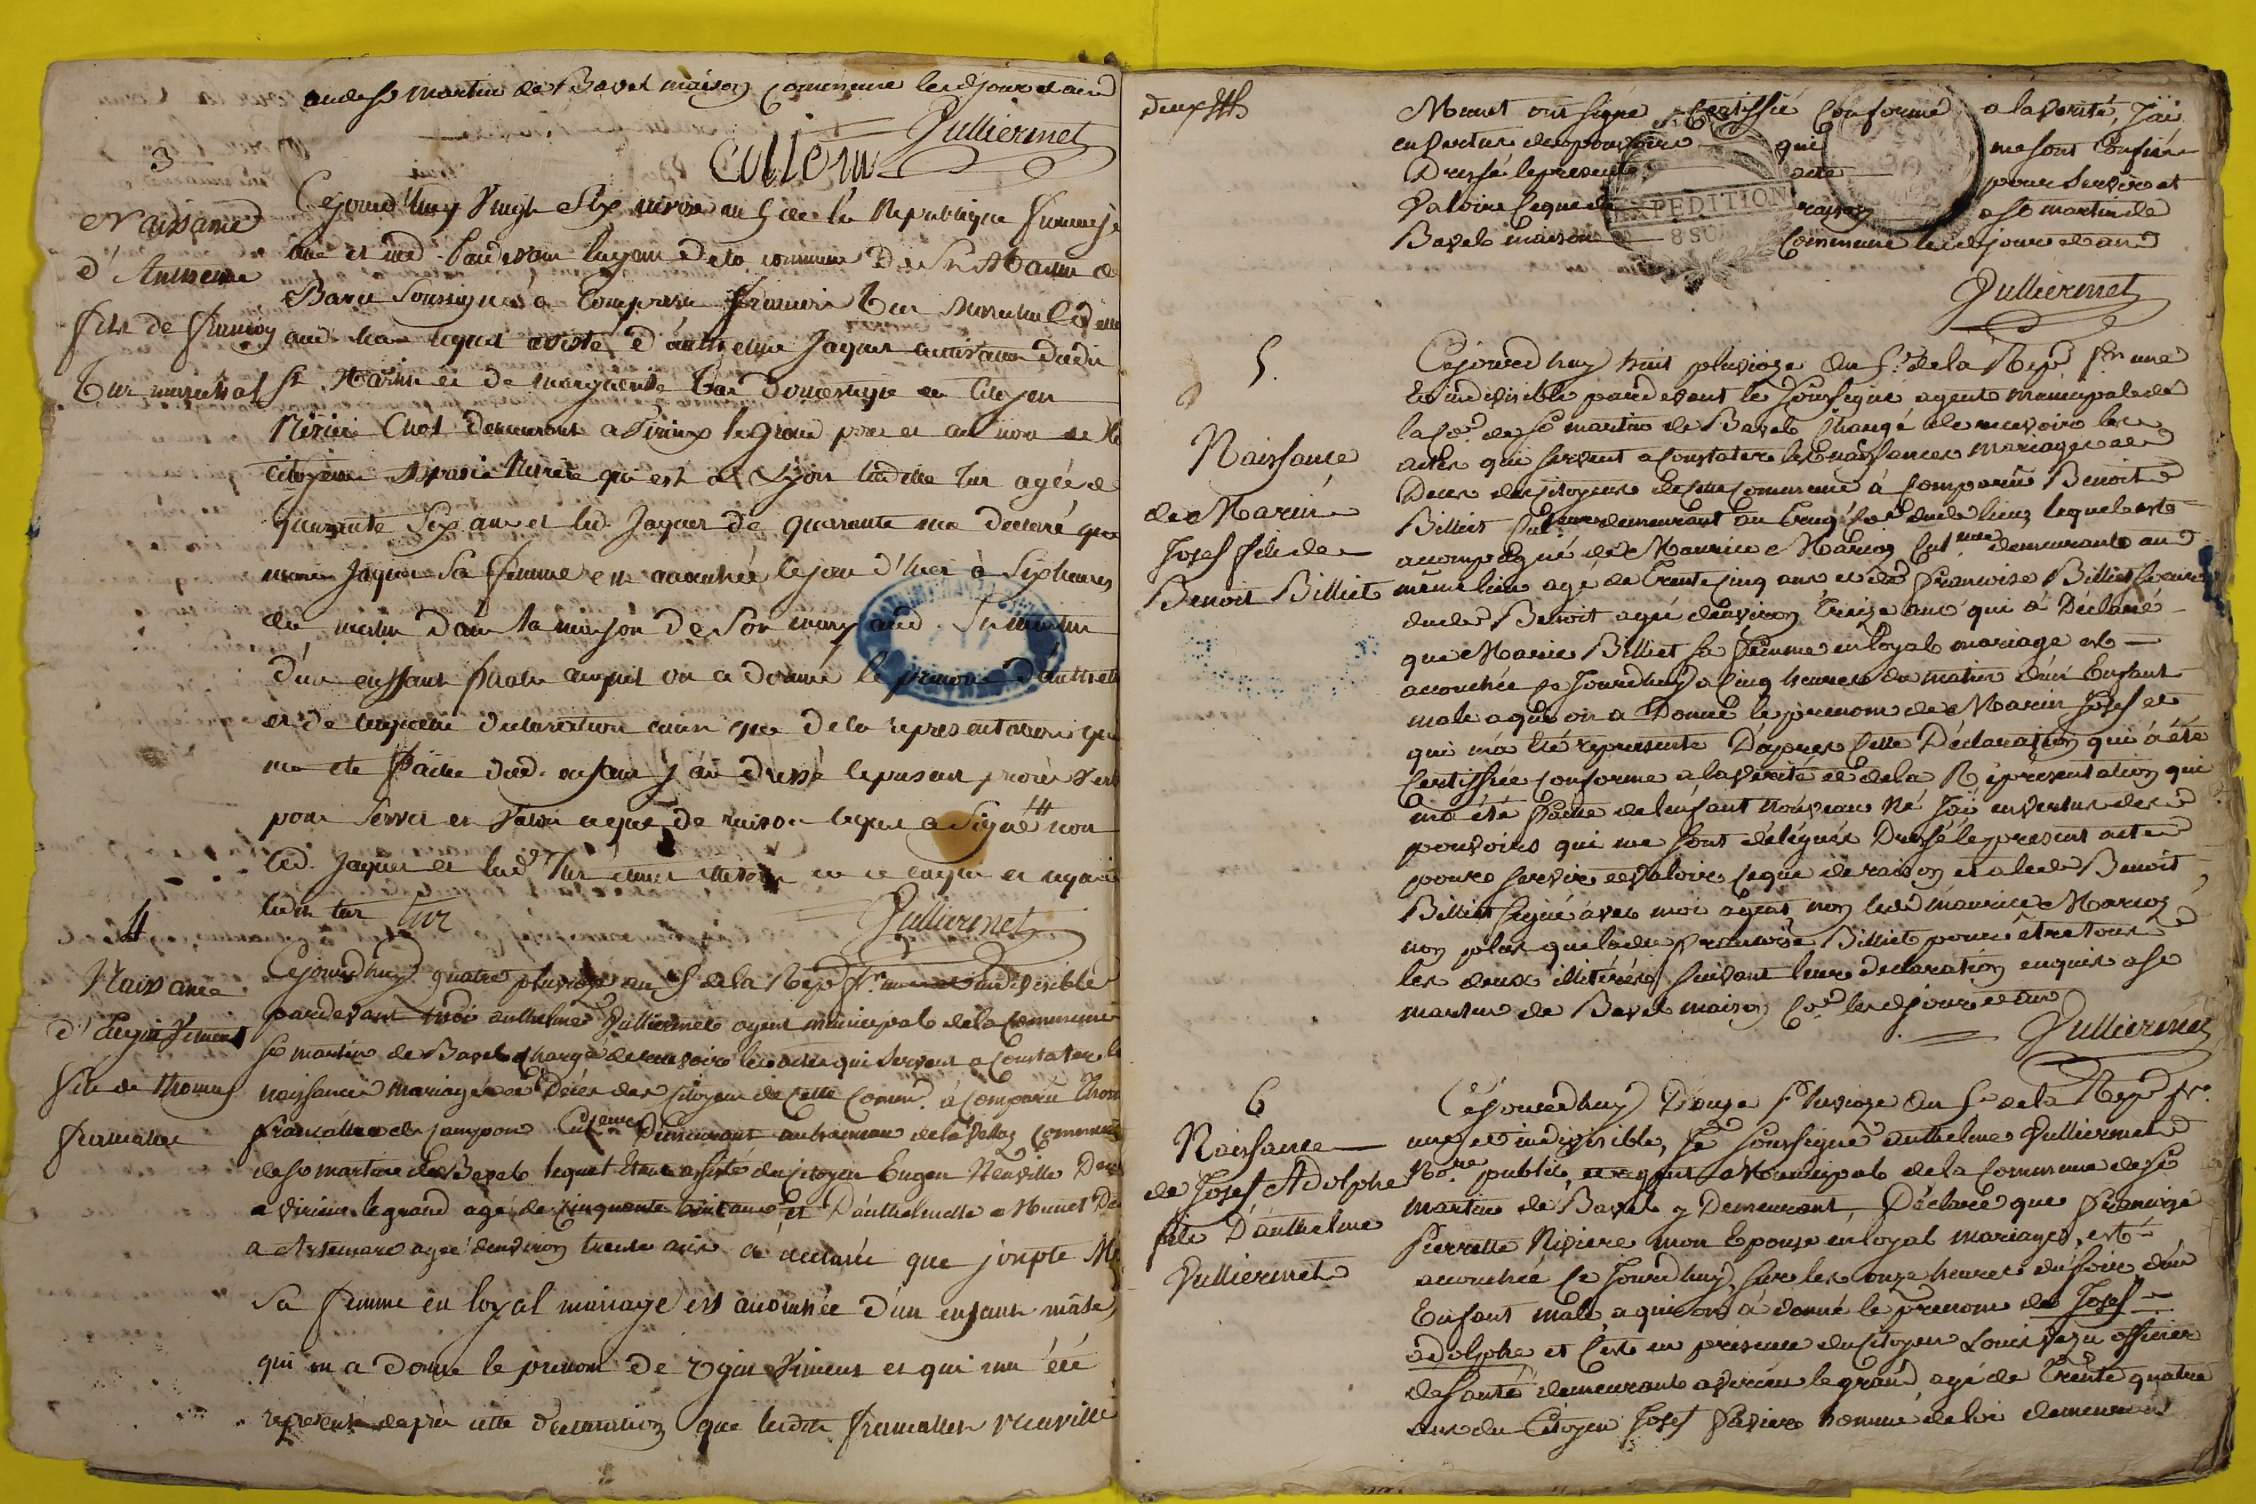 aud st martin de Bavel maison commune led jour et an
Julliermet
Collom
3
Naissance
d'
fils de françois
Tur marechal
Cejourd'huy vingt six nivose an 5 de la Republique francaise
une et ind. pardevant l'agent de la commune de St Martin de
Bavel soussigné a comparu françois Tur marechal
aud lieu lequel assisté d'anthelme Jaques cultivateur dudit
St Martin et de marguerite Tur domestique du citoyen
demeurant a Virieux le grand pour et au nom de la
citoyenne qui est a Lyon ladite Tur agée de
quarante six ans et led. Jaques de quarante ma declaré que
Jaques sa femme est accouchée le jour d'hier à six heures
du matin dans la maison de son mary aud. St martin
d'un enffant male auquel on a donné le prenom d'anthelme
et de laquelle declaration ainsi que de la representation qui
ma ete faitte dud. enfant j'ai dressé le present procès verbal
pour servir et valoir ce que de raison lequel a signé non
led. Jaques et lad Tur pour etre illiteré de ce enquis et requis
ledit tur Tur
Julliermet
4
Naissance
d'Eugin Vincent
fils de thomas
framallier
Cejourd'huy quatre pluvioze an 5 de la Rep. fr. une et indivisible
pardevant moi anthelme Jullermet agent municipal de la commune
St martin de Bavel chargé de recevoir les actes qui servent a constater les
naissances mariages et Décès des citoyens de cette comm.e à comparu Thomas
demeurant au hameau de la commune
de St martin de Bavel lequel etant assisté du citoyen Eugen Neuville Dem
a virieu le grand agé de cinquante huit ans et D'anthelmette Munet De
a Artemare agée d'environ trente ans a declaré que josepte M
sa femme en loyal mariage est accouchée d'un enfant mâle,
qui on a donné le prenom de Ogin Vincent et qui ma été
representé daprès cette declaration que ledit framallier Neuville
deux
Munet ont signé certiffié conforme a la verité, J'ai
en vertus des pouvoirs qui me sont confiés
Dressé le present acte pour servir et
Valoire ce que de raison a St martin de
Bavel maison commune led jour et an
EXPEDITION
8 SOLS
Jullermet
5.
Naissance
de Marin
Josef fils de
Benoit Billiet
Cejourd'huy huit pluvioze an 5.e de la Rep. fr. une
et indivisible pardevant le soussigné agent municipal de
la co.e de St martin de Bavel chargé de recevoir les
actes qui servent a constater les naissances mariages et
Décès des citoyens de cette commune à comparu Benoit
Billiet cul.teur demeurant au dud. lieu lequel est
accompagné de Maurice Marioz cul.teur demeurant aud
même lieu agé de trente cinq ans et de françoise Billiet soeur
dud. Benoit agée d'environ treize ans qui a Déclaré
que Marie Billiet sa femme en loyal mariage est
accouchée ce Jourdhuy a cinq heures du matin d'un Enfant
male a qui on a Donné le prenom de Marin Josef et
qui m'a été representé D'apres cette Déclaration qui a été
certiffiée conforme a la verité et de la Representation qui
m'a été faitte de l'enfant nouveau né J'ai en vertus des
pouvoirs qui me sont délégués Dressé le present acte
pour servir et valoir ce que de raison et a led Benoit
Billiet signé avec moi agent non led maurice Marioz
non plus que lad. françoise Billiet pour être tous
les deux illitérés suivant leur declaration enquis a St
martin de Bavel maison co.e led jour et an
Jullermet
6
Naissance
de Josef Adolphe
fils D'anthelme
Jullermet
Cejourd'huy Douze Pluvioze an 5.e de la Rep. fr.
une et indivisible, Je soussigné anthelme Jullermet
No.re public, et agent Municipal de la Commune de St
martin de Bavel y Demeurant, Déclare que françoise
Pierrette Riviere mon Epouse en loyal mariage, est
accouchée ce Jourdhuy sur les onze heures du soir d'un
Enfant male, a qui on a donné le prenom de Josef
adolphe et c'est en presence du citoyen Louis officier
de santé demeurant a virieu le grand agé de Trente quatre
ans du Citoyen Josef Riviere homme de loi demeurant